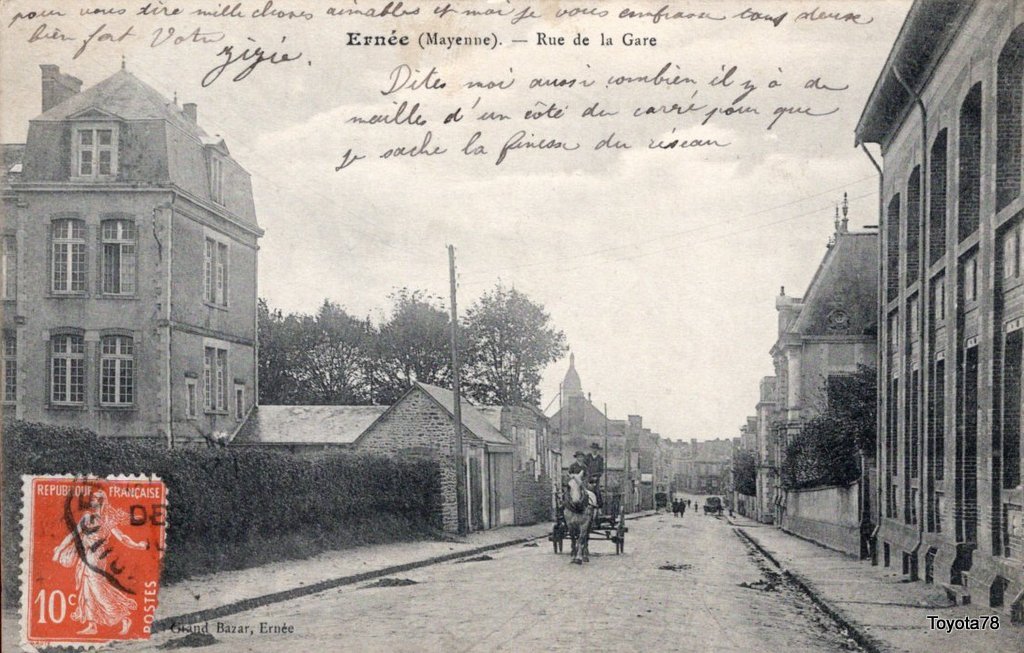 pour vous dire mille choses aimables et moi je vous embrasse tous deux
bien fort Votre
zizie.
Ernée (Mayenne). — Rue de la Gare
Dites moi aussi combien il y a de
mailles d'un côté du carré pour que
je sache la finesse du réseau
REPUBLIQUE FRANÇAISE
10c POSTES
Grand Bazar, Ernée
Toyota78